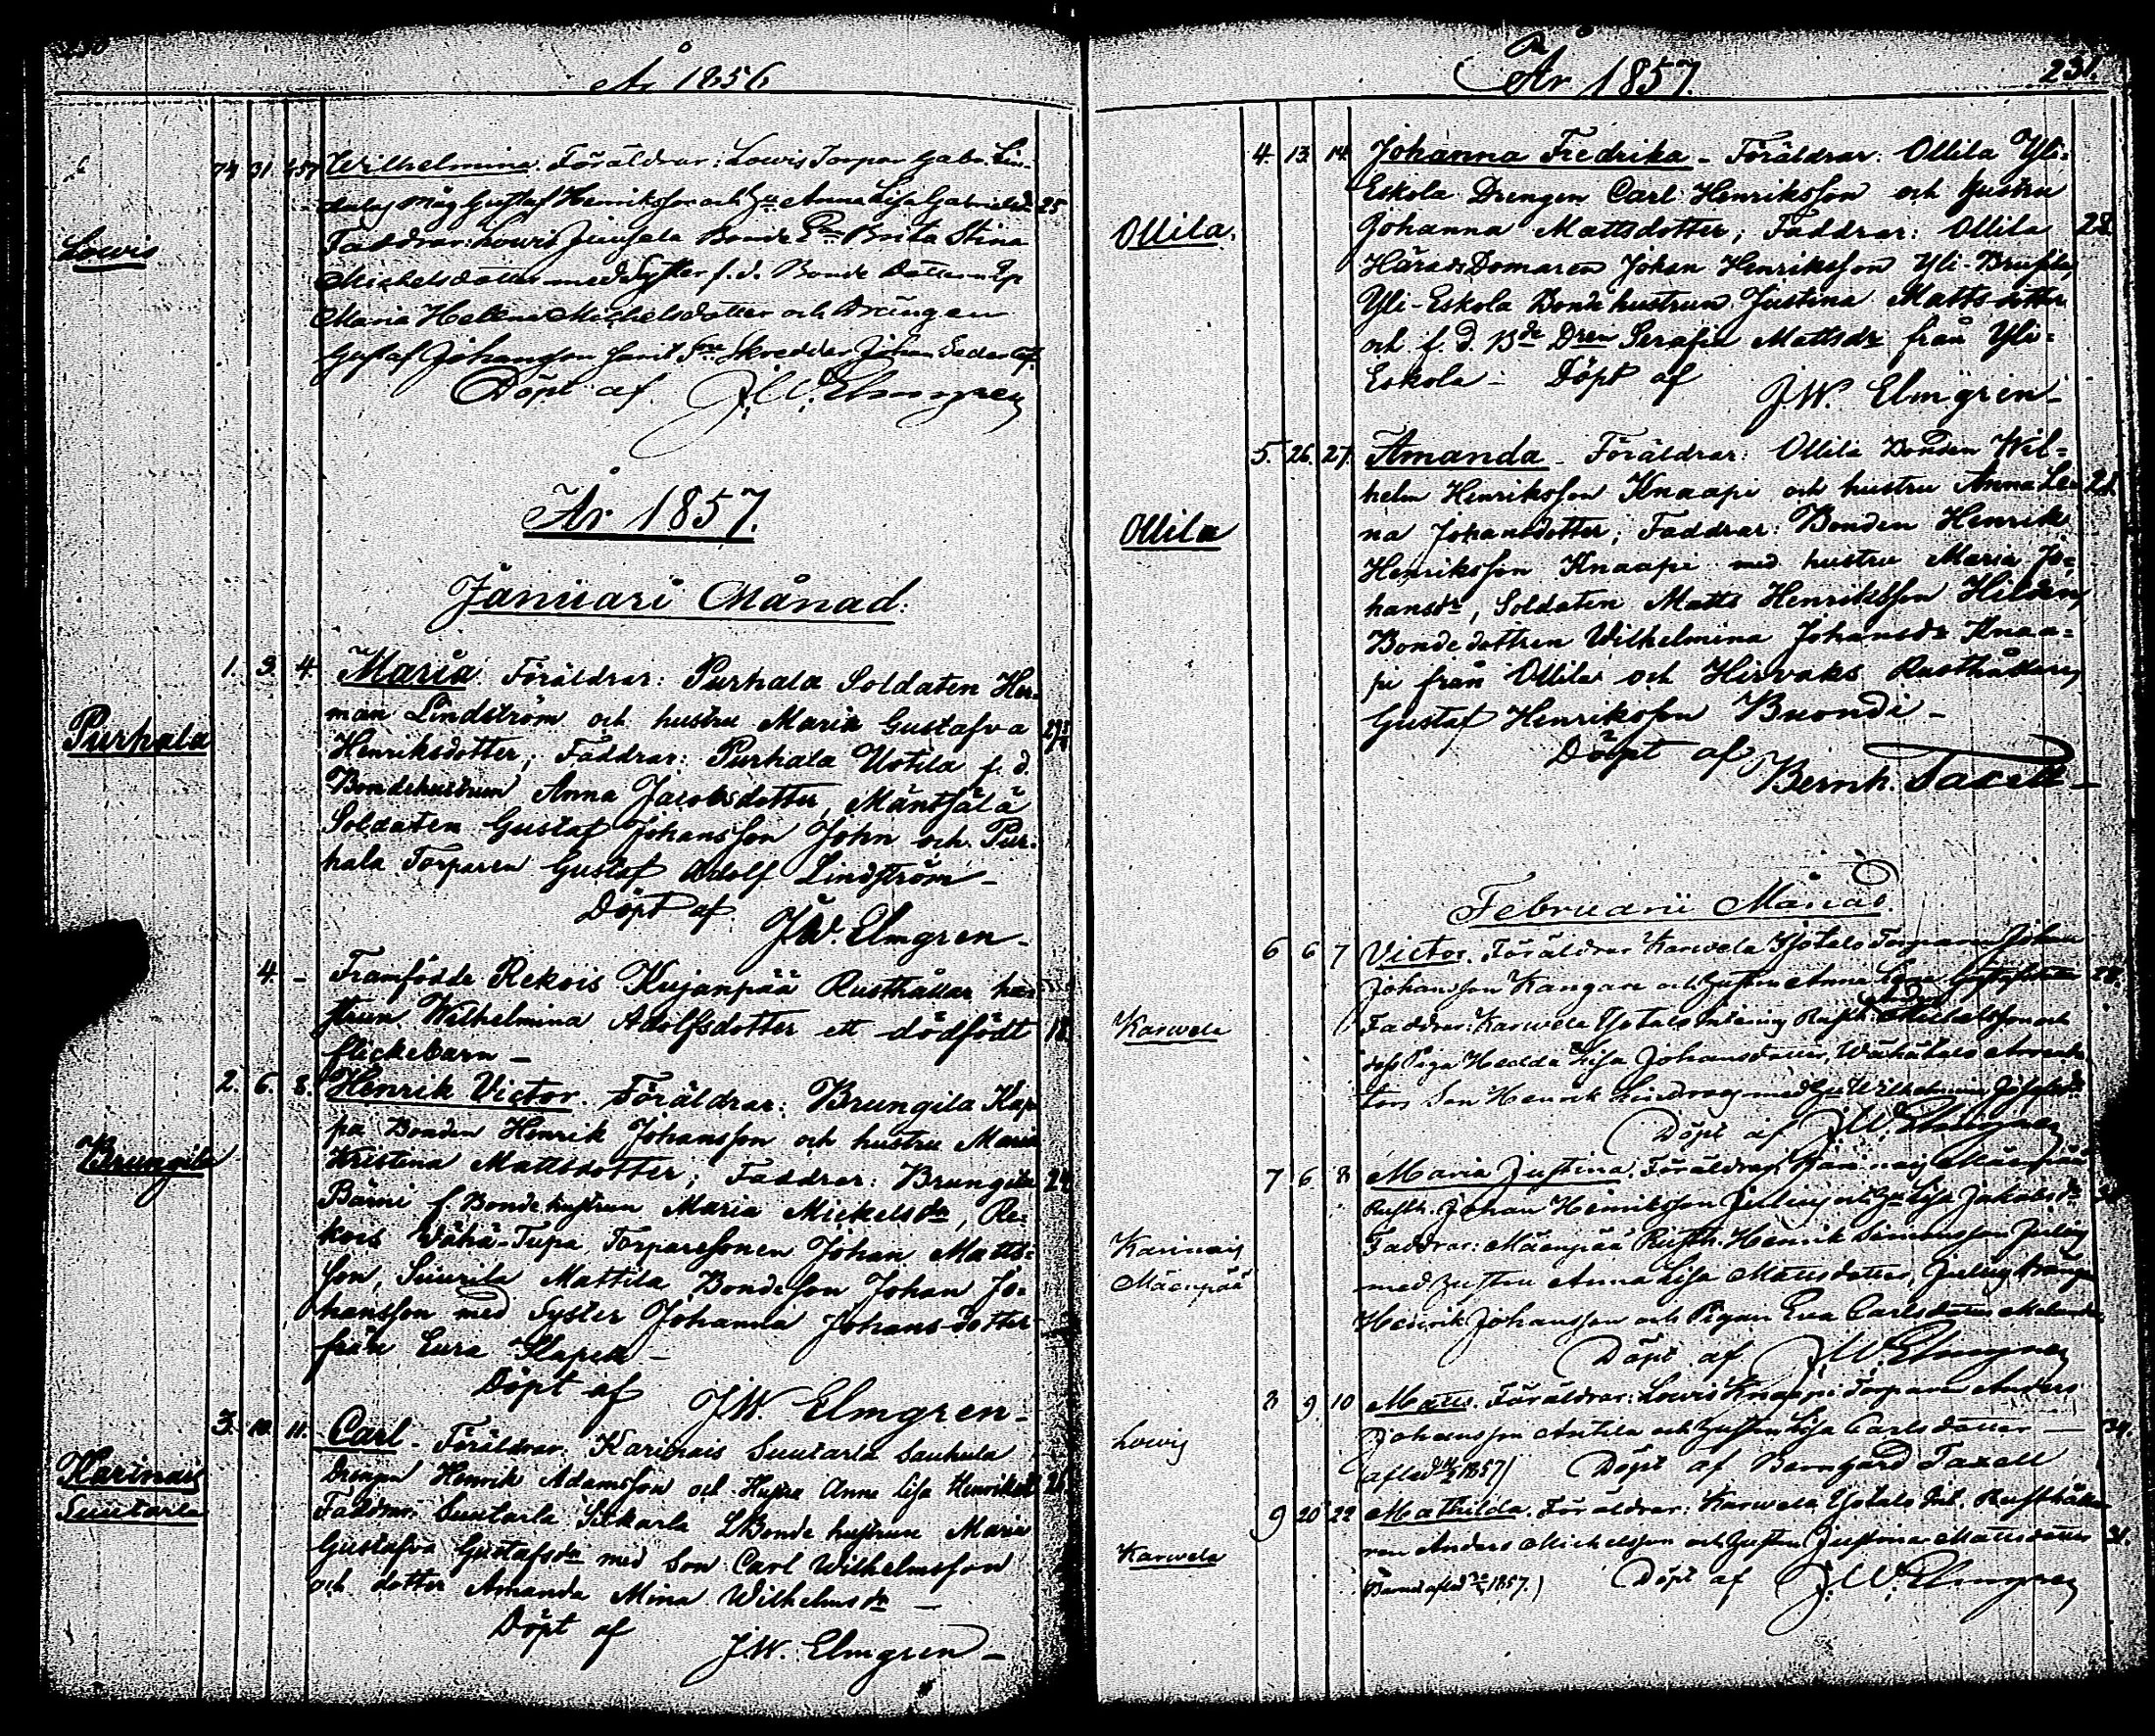 År 1856
74 31 1/57 Wilhelmina. Föräldrar: Lowis Torpar Gabr. Lin-
måg Gustaf Henriksson och Hu Anna Lisa Gabrielsd. 25
Lowis
Faddrar: Lowis Junsela Bonde Brita Stina
Michelsdotter med Syster f. d. Bonde Dottern
Maria Helena Michelsdotter och Drängen
Gustaf Johansson samt Skredder Johan
Döpt af J. W. Elmgren
År 1857.
Januari Månad.
1. 3. 4. Maria. Föräldrar: Purhala Soldaten Her-
Purhala
man Lindström och hustru Maria Gustafva
Henriksdotter; Faddrar: Purhala Uotila f. d.
Bondehustrun Anna Jacobsdotter, Mäntsälä
Soldaten Gustaf Johansson John och Pur-
hala Torparen Gustaf Adolf Lindström –
Döpt af J. W. Elmgren –
4. – Framfödde Rekois Kujanpää Rusthållar hu-
strun Wilhelmina Adolfsdotter ett dödfödt 18.
flickebarn –
2. 6. 8. Henrik Victor. Föräldrar: Brungila Kap-
Brungila
pa Bonden Henrik Johansson och hustru Maria
Kristina Mattsdotter; Faddrar: Brungila
Bärri f. Bondehustrun Maria Mickelsdr, Re-
kois Wähä-Tupa Torparesonen Johan Matts-
son, Suurila Mattila Bondeson Johan Jo-
hansson med Syster Johanna Johans-dotter
från Eura
Döpt af J. W. Elmgren –
3. 10. 11. Carl – Föräldrar: Karinais Suutarla Sauhula
Karinais
Suutarla
Drengen Henrik Adamsson och Hustru Anna Lisa Henriksdr
Faddrar: Suutarla Sukarla Bonde hustrun Maria
Gustafva Gustafsdr med Son Carl Wilhelmsson
och dotter Amanda Mina Wilhelmsdr –
Döpt af J. W. Elmgren –
År 1857. 231.
4. 13. 14. Johanna Fredrika – Föräldrar: Ollila Yli-
Eskola Drengen Carl Henriksson och hustru
Ollila.
Johanna Mattsdotter; Faddrar: Ollila 28.
HäradsDomaren Johan Henriksson Yli-
Yli-Eskola Bonde hustrun Justina Mattsdotter
och f. d. Bde Dren Serafia Mattsdr från Yli-
Eskola – Döpt af
J. W. Elmgren –
5. 26. 27. Amanda – Föräldrar: Ollila Bonden Wil-
helm Henriksson Knaapi och hustru Anna Le-
Ollila
na Johansdotter; Faddrar: Bonden Henrik
Henriksson Knaapi med hustru Maria Jo-
hansdr, Soldaten Matts Henriksson Hilden,
Bondedottren Wilhelmina Johansdr Knaa-
pi från Ollila och Hirvoks Rusthållaren
Gustaf Henriksson Buondi –
Döpt af
Bernh. Taxell –
Februarii Månad.
6 6 7 Victor. Föräldrar Karwela Yotala Torparen Johan
Johansson Kangare och Hustru Anna
Karwela
Faddrar: Karwela Yotala Rusth. Michelsson och
dess Piga Hedda Lisa Johansdotter, Wähätalo
Son Henrik Lindroos med Hu Wilhelmina
Döpt af J. W. Elmgren
7 6 8 Maria Justina. Föräldrar: Karinais Mäenpää
Rusth. Johan Henriksson Julius och Hu Lisa Jakobsdr
Karinais
Mäenpää
Faddrar: Mäenpää Rusth. Henrik Simonsson
med hustru Anna Lisa Mattsdotter,
Henrik Johansson och Pigan Eva Carlsdotter
Döpt af J. W. Elmgren
8 9. 10 Matts. Föräldrar: Lowis Knaapi Torparen Anders
Lowis
Johansson Antila och Hustru Lisa Carlsdotter –
1857) Döpt af Berngard Taxell
9 20 22 Mathilda. Föräldrar: Karwela Yotala Rusthålla-
Karwela
ren Anders Michelsson och Hustru Justina Mattsdotter 31.
1857.) Döpt af J. W. Elmgren